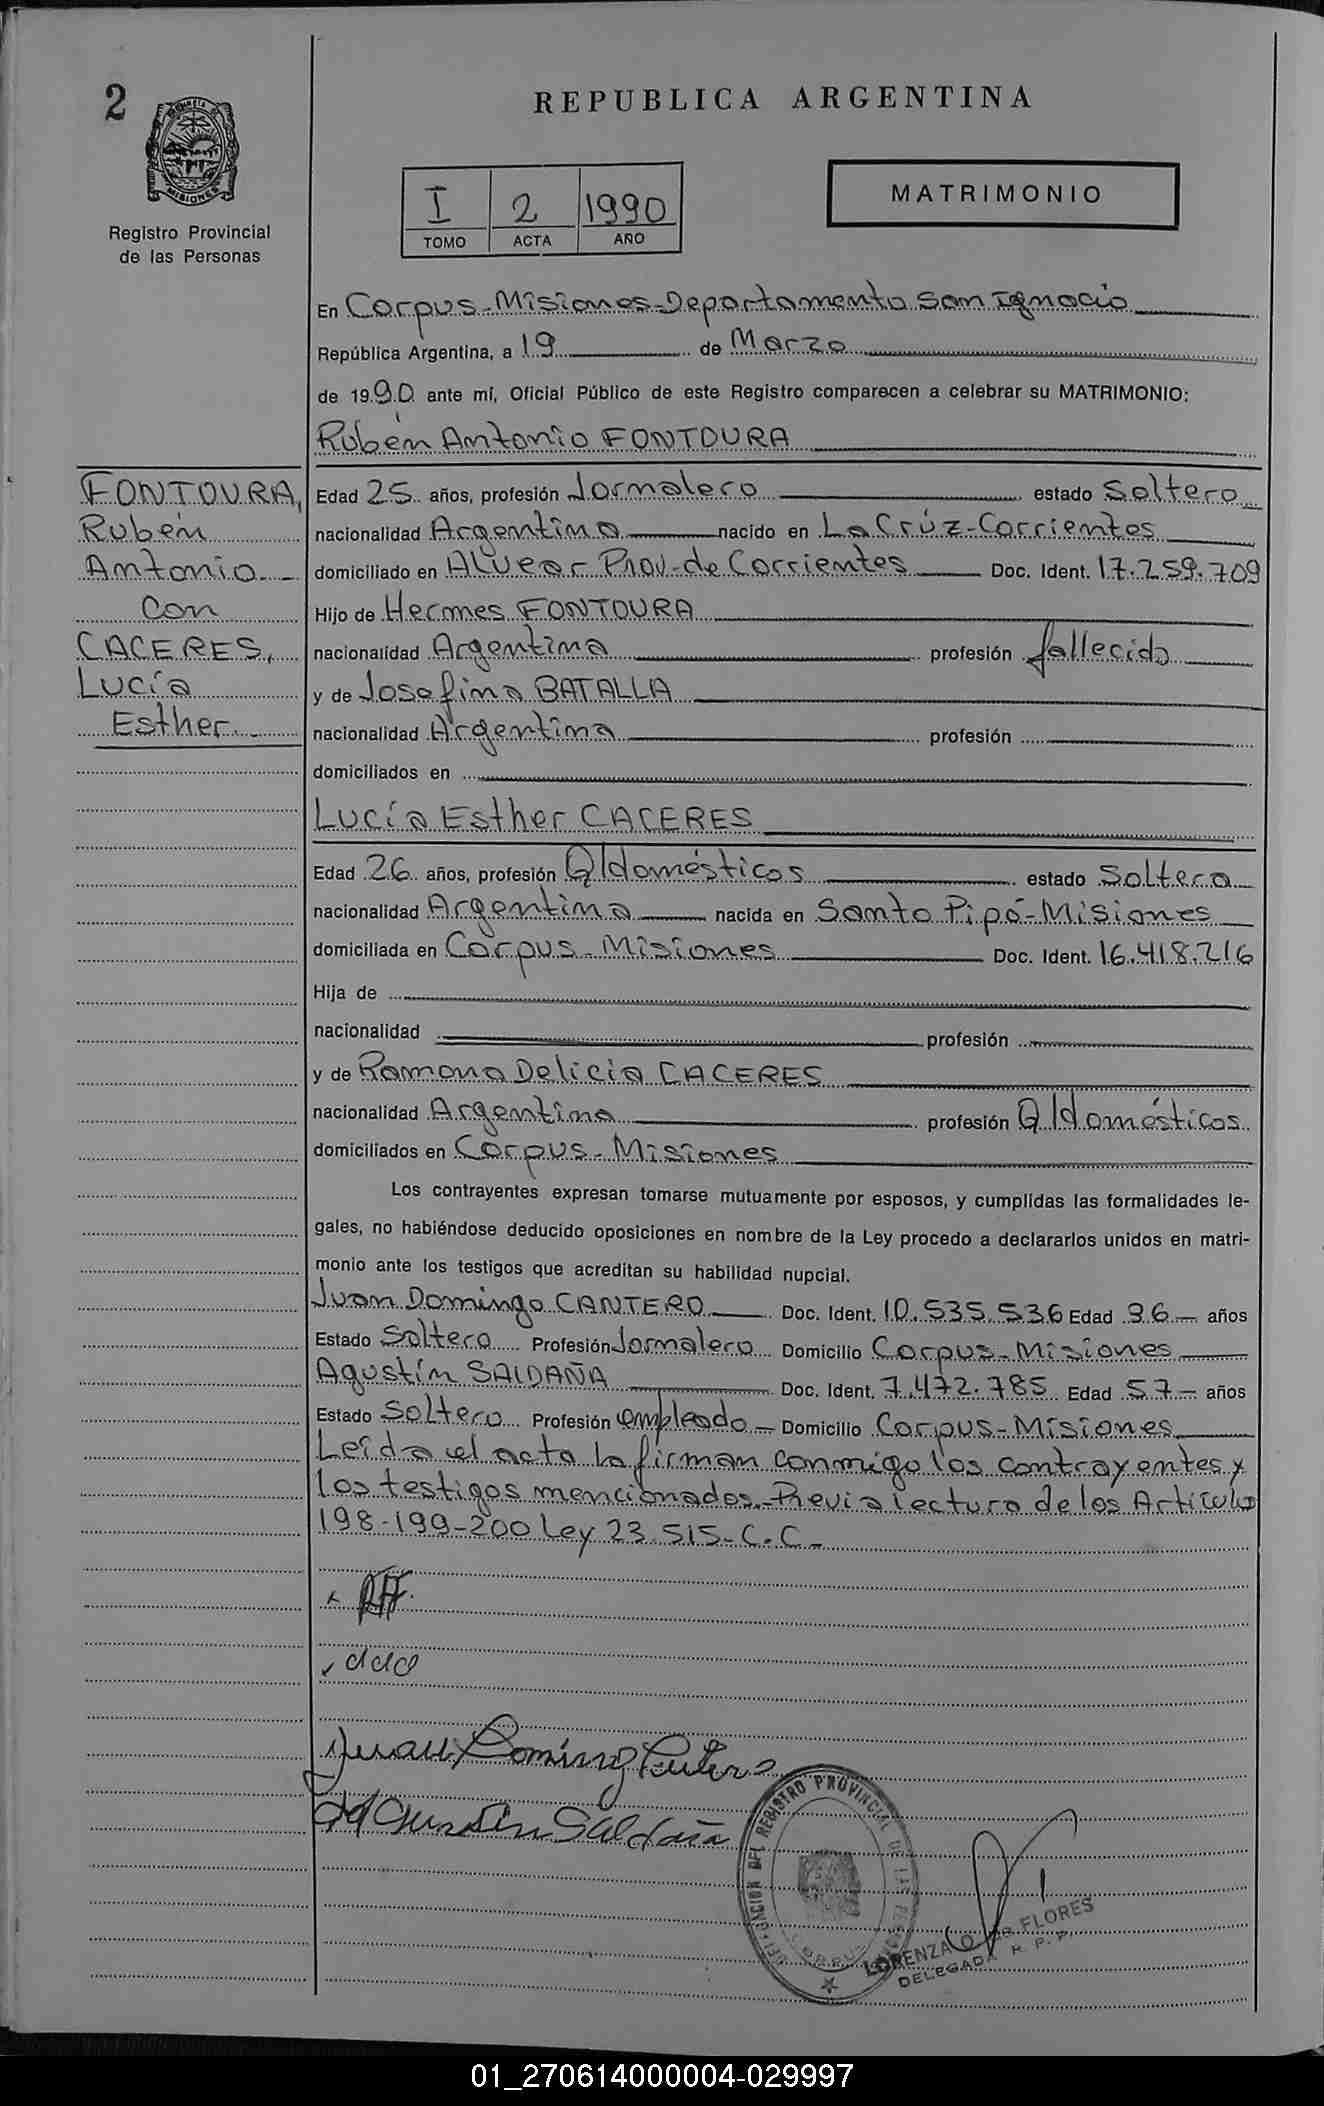 2
REPUBLICA ARGENTINA
MISIONES
Registro Provincial
de las Personas
I 2 1990
TOMO ACTA AÑO
MATRIMONIO
En Corpus-Misiones-Departamento San Ignacio
República Argentina, a 19 de Marzo
de 1990 ante mí, Oficial Público de este Registro comparecen a celebrar su MATRIMONIO:
Rubén Antonio FONTOURA
FONTOURA,
Rubén
Antonio
con
CACERES,
Lucía
Esther.
Edad 25 años, profesión Jornalero estado Soltero
nacionalidad Argentina nacido en La Crúz-Corrientes
domiciliado en Alvear Prov-de Corrientes Doc. Ident. 17.259.709
Hijo de Hermes FONTOURA
nacionalidad Argentina profesión fallecido
y de Josefina BATALLA
nacionalidad Argentina profesión
domiciliados en
Lucía Esther CACERES
Edad 26 años, profesión Q/domésticos estado Soltera
nacionalidad Argentina nacida en Santo Pipó-Misiones
domiciliada en Corpus-Misiones Doc. Ident. 16.418.216
Hija de
nacionalidad profesión
y de Ramona Delicia CACERES
nacionalidad Argentina profesión Q/domésticos
domiciliados en Corpus-Misiones
Los contrayentes expresan tomarse mutuamente por esposos, y cumplidas las formalidades le-
gales, no habiéndose deducido oposiciones en nombre de la Ley procedo a declararlos unidos en matri-
monio ante los testigos que acreditan su habilidad nupcial.
Juan Domingo CANTERO Doc. Ident. 10.535.536 Edad 36 años
Estado Soltero Profesión Jornalero Domicilio Corpus-Misiones
Agustín SALDAÑA Doc. Ident. 7.472.785 Edad 57 años
Estado Soltero Profesión empleado Domicilio Corpus-Misiones
Leída el acta la firman conmigo los contrayentes y
los testigos mencionados.-Previa lectura de los Artículo
198-199-200 Ley 23.515-C.C.-
Juan Domingo Cantero
Agustín Saldaña
DELEGACION DEL REGISTRO PROVINCIAL DE LAS PERSONAS
LORENZA O. DE FLORES
DELEGADA R. P. P.
01_270614000004-029997